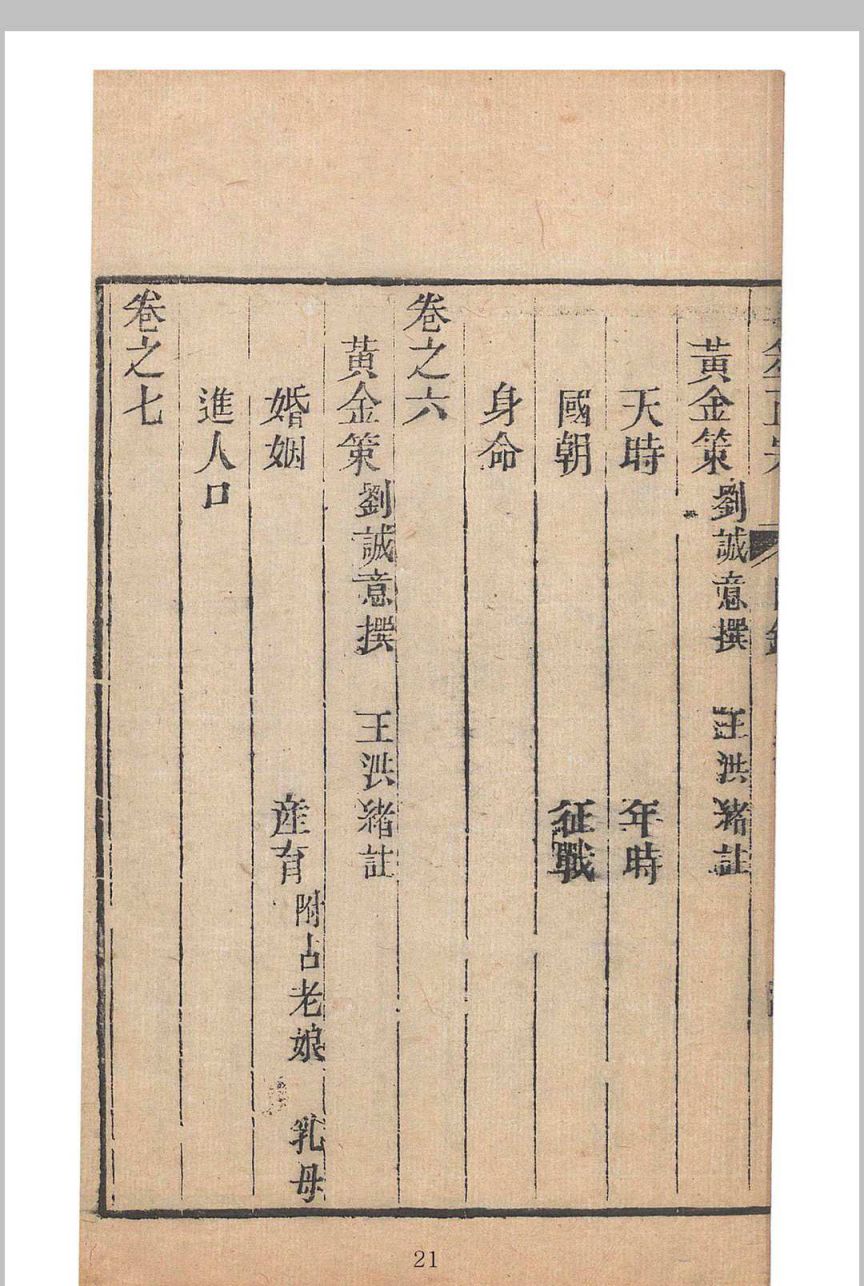 黃金策 劉誠意撰 王洪緒註
天時 年時
國朝 征戰
身命
卷之六
黃金策 劉誠意撰 王洪緒註
婚姻 産育 附占老娘 乳母
進人口
卷之七
21